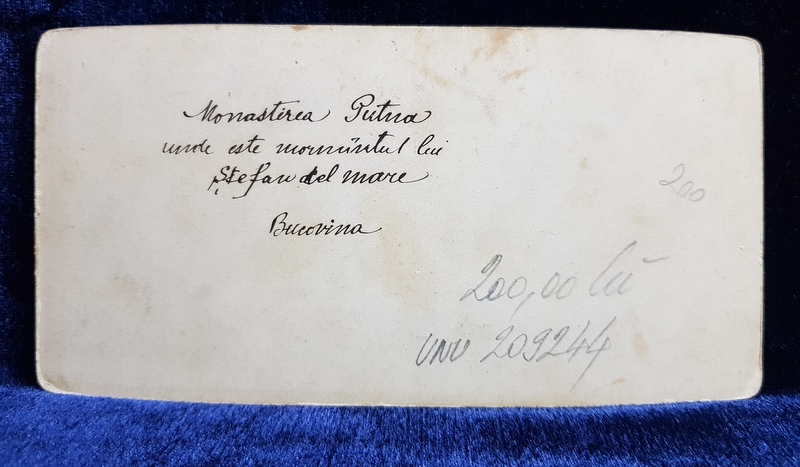 Monastirea Putna
unde este mormîntul lui
Ștefan cel mare
Bucovina
200
200,00 lei
INV 209244